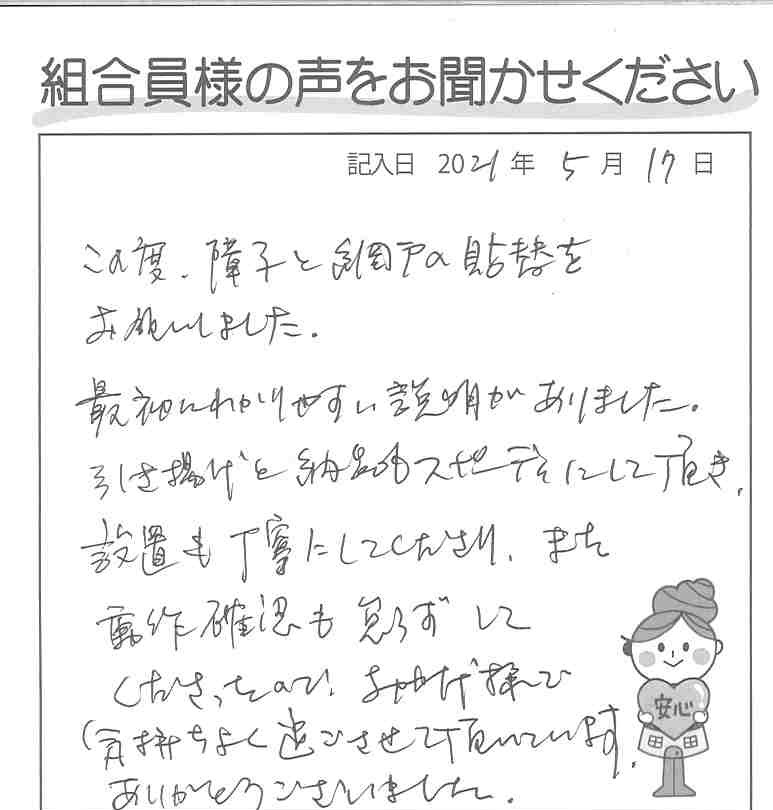 組合員様の声をお聞かせください
記入日 2021年 5月 17日
この度、障子と網戸の貼替を
お願いしました。
最初にわかりやすい説明がありました。
引き揚げと納品もスピーディにして頂き、
設置も丁寧にしてくださり、また
動作確認も怠らずして
くださったので、おかげ様で
気持ちよく過ごさせて頂いています。
ありがとうございました。
安心